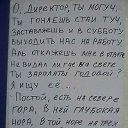 О, Директор, ты могуч,
Ты гоняешь стаи туч,
Заставляешь и в субботу
Выходить нас на работу
Аль откажешь мне в ответе
Не видал ли где на свете
Ты зарплаты годовой?
Я ищу её...
- Постой, есть на севере
гора, в ней глубокая
нора, в той норе на трех